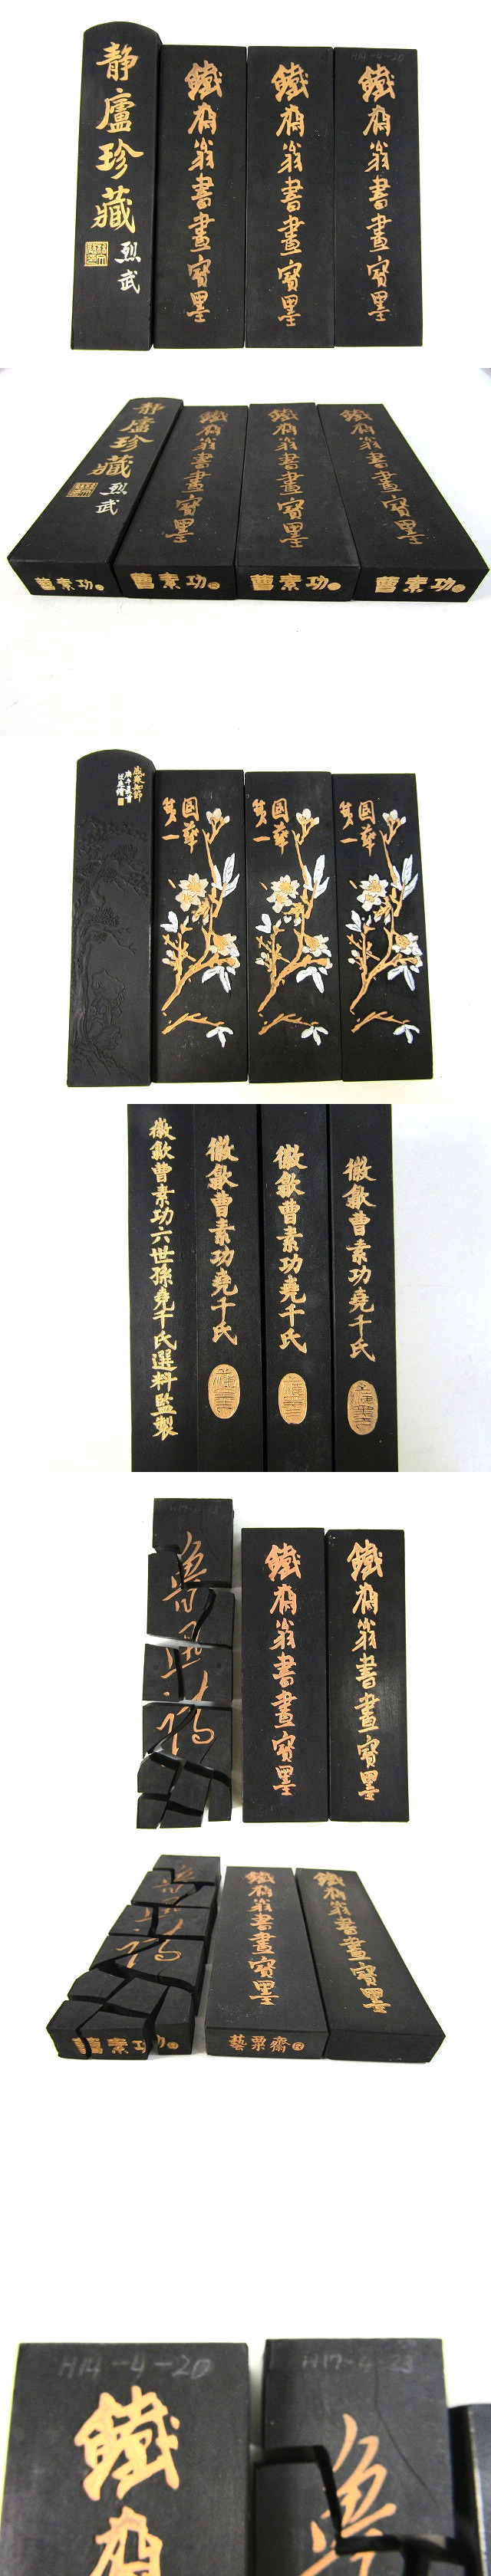 静廬珍藏
烈武
鐵齋翁書畫寶墨
鐵齋翁書畫寶墨
H14-4-20
鐵齋翁書畫寶墨
静廬珍藏
烈武
鐵齋翁書畫寶墨
鐵齋翁書畫寶墨
鐵齋翁書畫寶墨
曹素功
曹素功
曹素功
曹素功
國華
第一
國華
第一
國華
第一
徽歙曹素功六世孫堯千氏選料監製
徽歙曹素功堯千氏
徽歙曹素功堯千氏
徽歙曹素功堯千氏
H17-4-23
鐵齋翁書畫寶墨
鐵齋翁書畫寶墨
鐵齋翁書畫寶墨
鐵齋翁書畫寶墨
曹素功
藝粟齋
H14-4-20
鐵
H17-4-23